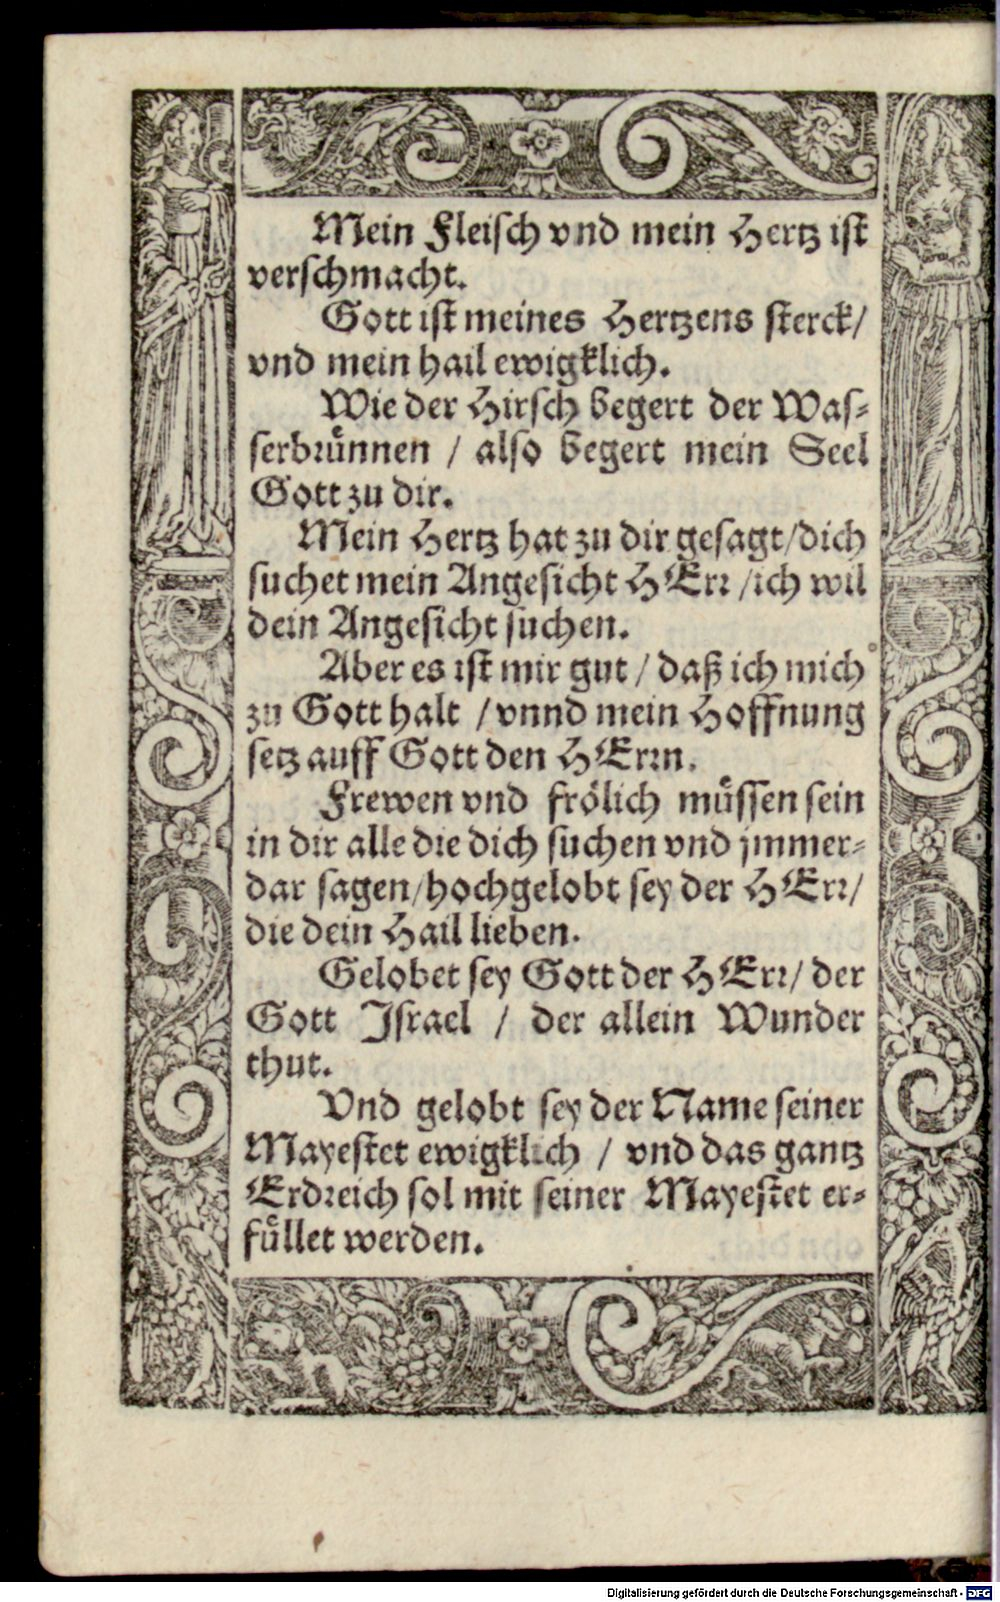 Mein Fleisch vnd mein Hertz ist
verschmacht.
Gott ist meines Hertzens sterck/
vnd mein hail ewigklich.
Wie der Hirsch begert der Was-
serbrünnen / also begert mein Seel
Gott zu dir.
Mein Hertz hat zu dir gesagt/dich
suchet mein Angesicht HErr /ich wil
dein Angesicht suchen.
Aber es ist mir gut / daß ich mich
zu Gott halt / vnnd mein Hoffnung
setz auff Gott den HErrn.
Frewen vnd frölich müssen sein
in dir alle die dich suchen vnd jmmer-
dar sagen/hochgelobt sey der HErr/
die dein Hail lieben.
Gelobet sey Gott der HErr/ der
Gott Israel / der allein Wunder
thut.
Vnd gelobt sey der Name seiner
Mayestet ewigklich / vnd das gantz
Erdreich sol mit seiner Mayestet er-
füllet werden.
Digitalisierung gefördert durch die Deutsche Forschungsgemeinschaft - DFG